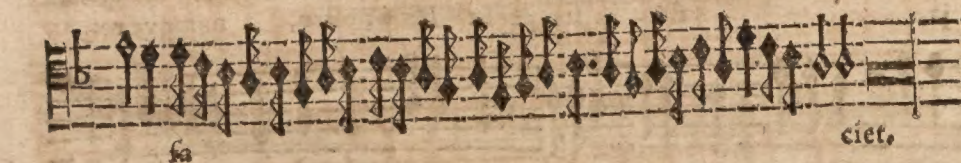 fa ciet.